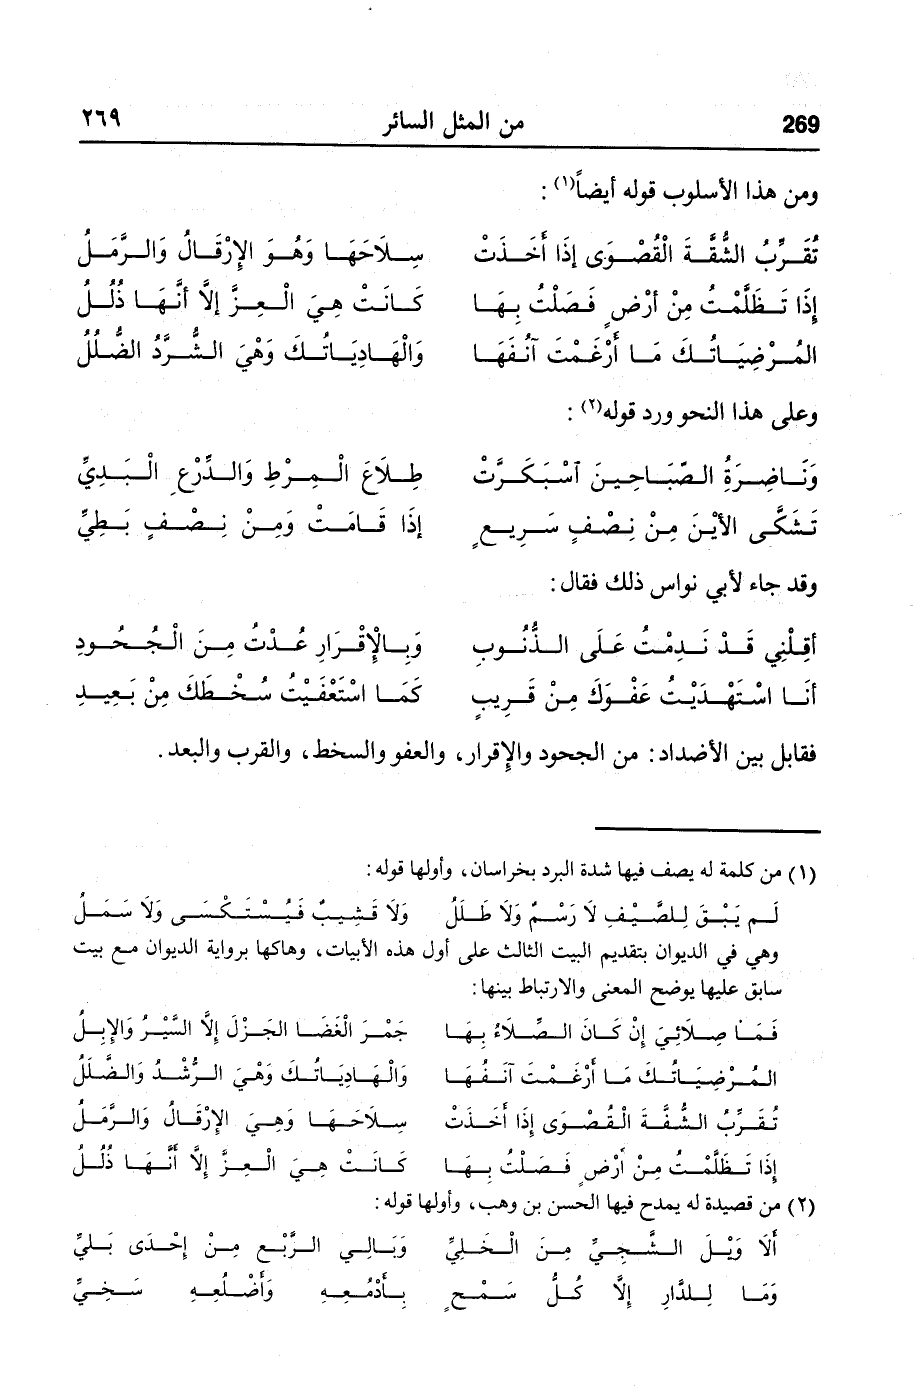 269 من المثل السائر ٢٦٩
ومن هذا الأسلوب قوله أيضاً(١) :
تُقَرِّبُ الشُّقَّةَ الْقُصْوَى إِذَا أَخَذَتْ سِلَاحَهَا وَهُوَ الإِرْقَالُ وَالرَّمَلُ
إِذَا تَظَلَّمْتُ مِنْ أَرْضٍ فَصَلْتُ بِهَا كَانَتْ هِيَ الْعِزَّ إِلَّا أَنَّهَا ذُلُلُ
المُرْضِيَاتُكَ مَا أَرْغَمْتَ آنُفَهَا وَالْهَادِيَاتُكَ وَهْيَ الشُّرَّدُ الضُّلُلُ
وعلى هذا النحو ورد قوله(٢) :
وَنَاضِرَةُ الصِّبَاحِينَ اسْبَكَرَّتْ طِلَاعَ الْمِرْطِ وَالدِّرْعِ الْبَدِيِّ
تَشَكَّى الأَيْنَ مِنْ نِصْفٍ سَرِيعٍ إِذَا قَامَتْ وَمِنْ نِصْفٍ بَطِيِّ
وقد جاء لأبي نواس ذلك فقال :
أَقِلْنِي قَدْ نَدِمْتُ عَلَى الذُّنُوبِ وَبِالإِقْرَارِ عُدْتُ مِنَ الْجُحُودِ
أَنَا اسْتَهْدَيْتُ عَفْوَكَ مِنْ قَرِيبٍ كَمَا اسْتَعْفَيْتُ سُخْطَكَ مِنْ بَعِيدِ
فقابل بين الأضداد : من الجحود والإقرار ، والعفو والسخط ، والقرب والبعد .
(١) من كلمة له يصف فيها شدة البرد بخراسان ، وأولها قوله :
لَم يَبْقَ لِلصَّيْفِ لَا رَسْمٌ وَلَا طَلَلُ وَلَا قَشِيبٌ فَيُسْتَكْسَى وَلَا سَمَلُ
وهي في الديوان بتقديم البيت الثالث على أول هذه الأبيات ، وهاكها برواية الديوان مع بيت
سابق عليها يوضح المعنى والارتباط بينها :
فَمَا صِلَائِيَ إِنْ كَانَ الصِّلَاءُ بِهَا جَمْرَ الْغَضَا الْجَزْلَ إِلَّا السَّيْرُ وَالإِبِلُ
المُرْضِيَاتُكَ مَا أَرْغَمْتَ آنُفَهَا وَالْهَادِيَاتُكَ وَهْيَ الرُّشْدُ وَالضَّلَلُ
تُقَرِّبُ الشُّقَّةَ الْقُصْوَى إِذَا أَخَذَتْ سِلَاحَهَا وَهِيَ الإِرْقَالُ وَالرَّمَلُ
إِذَا تَظَلَّمْتُ مِنْ أَرْضٍ فَصَلْتُ بِهَا كَانَتْ هِيَ الْعِزَّ إِلَّا أَنَّهَا ذُلُلُ
(٢) من قصيدة له يمدح فيها الحسن بن وهب ، وأولها قوله :
أَلَا وَيْلَ الشَّجِيِّ مِنَ الْخَلِيِّ وَبَالِي الرَّبْعِ مِنْ إِحْدَى بَلِيِّ
وَمَا لِلدَّارِ إِلَّا كُلُّ سَمْحٍ بِأَدْمُعِهِ وَأَضْلُعِهِ سَخِيِّ